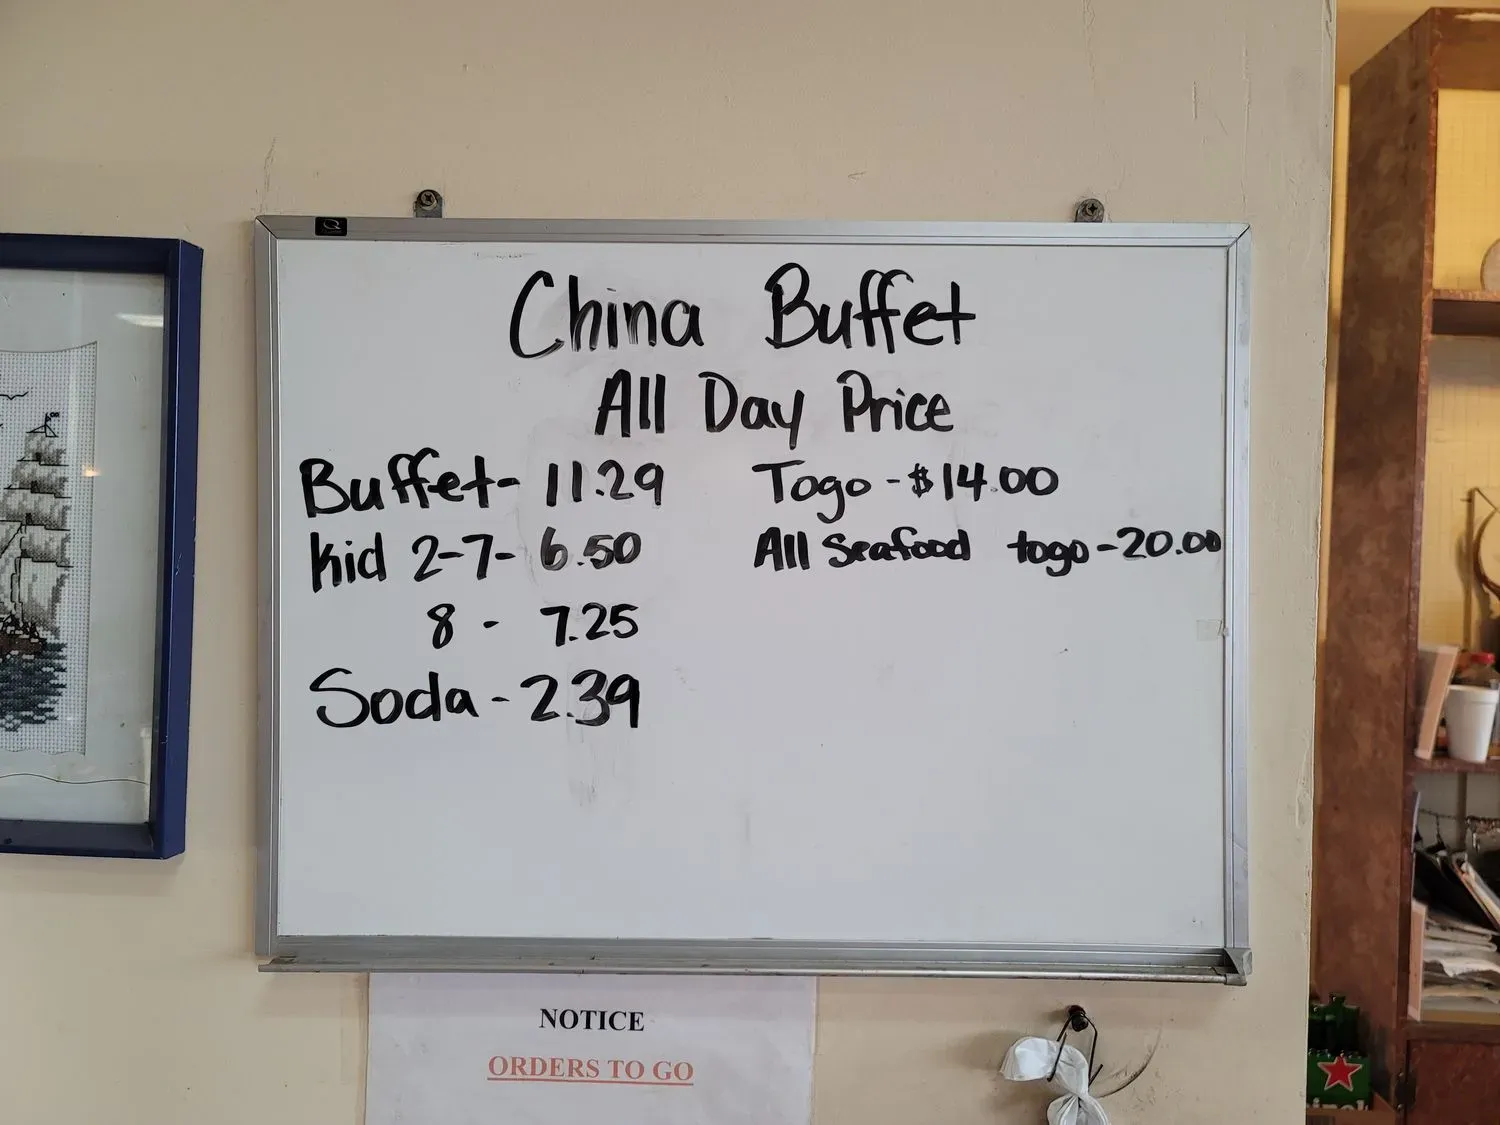 China Buffet
All Day Price
Buffet- 11.29
Kid 2-7- 6.50
8 - 7.25
Soda - 2.39
Togo - $14.00
All Seafood togo - 20.00
NOTICE
ORDERS TO GO